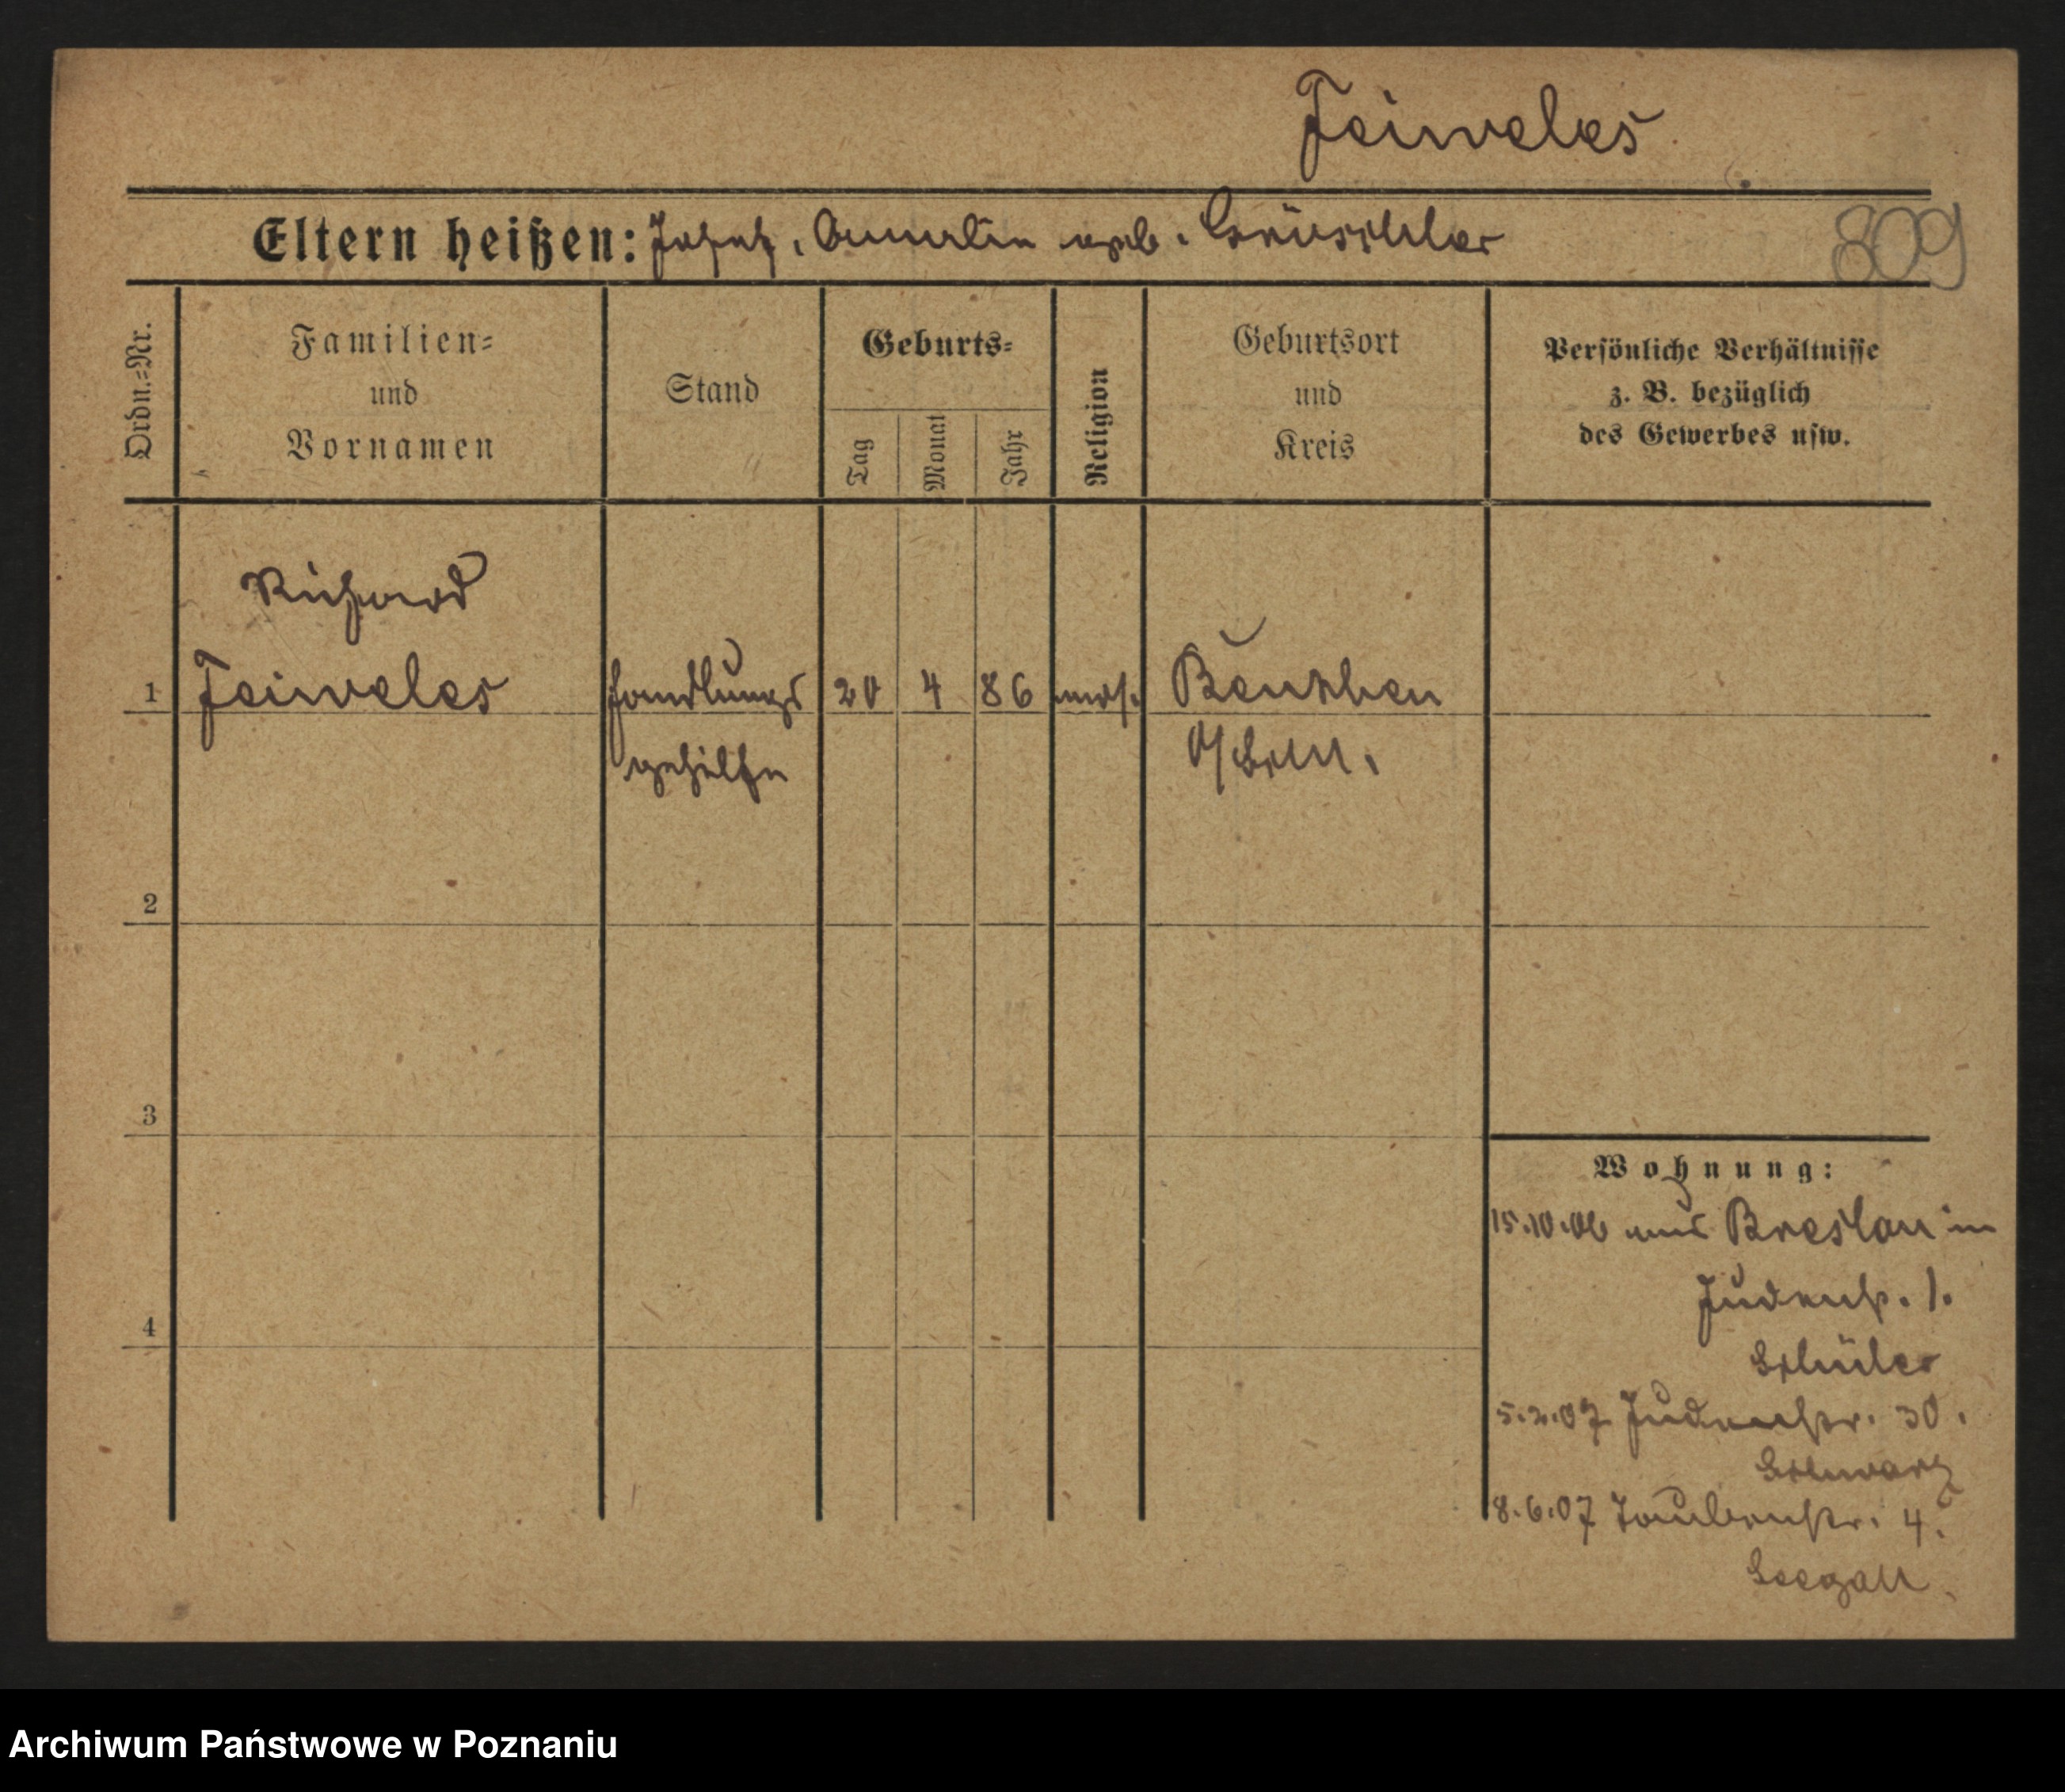 Feiweles
Eltern heißen: Josef, Amalie geb. Grüschler
809
Ordn.=Nr.
Familien=
und
Vornamen
Stand
Geburts=
Tag
Monat
Jahr
Religion
Geburtsort
und
Kreis
Persönliche Verhältnisse
z. B. bezüglich
des Gewerbes usw.
Richard
1 Feiweles Handlungs 20 4 86 mos. Beuthen
gehilfe O/Schl.
2
3
4
Wohnung:
15.10.06 aus Breslau in
Judenstr. 1.
Schüler
5.2.07 Judenstr. 30.
Schwarz
8.6.07 Taubenstr. 4.
Seegall.
Archiwum Państwowe w Poznaniu